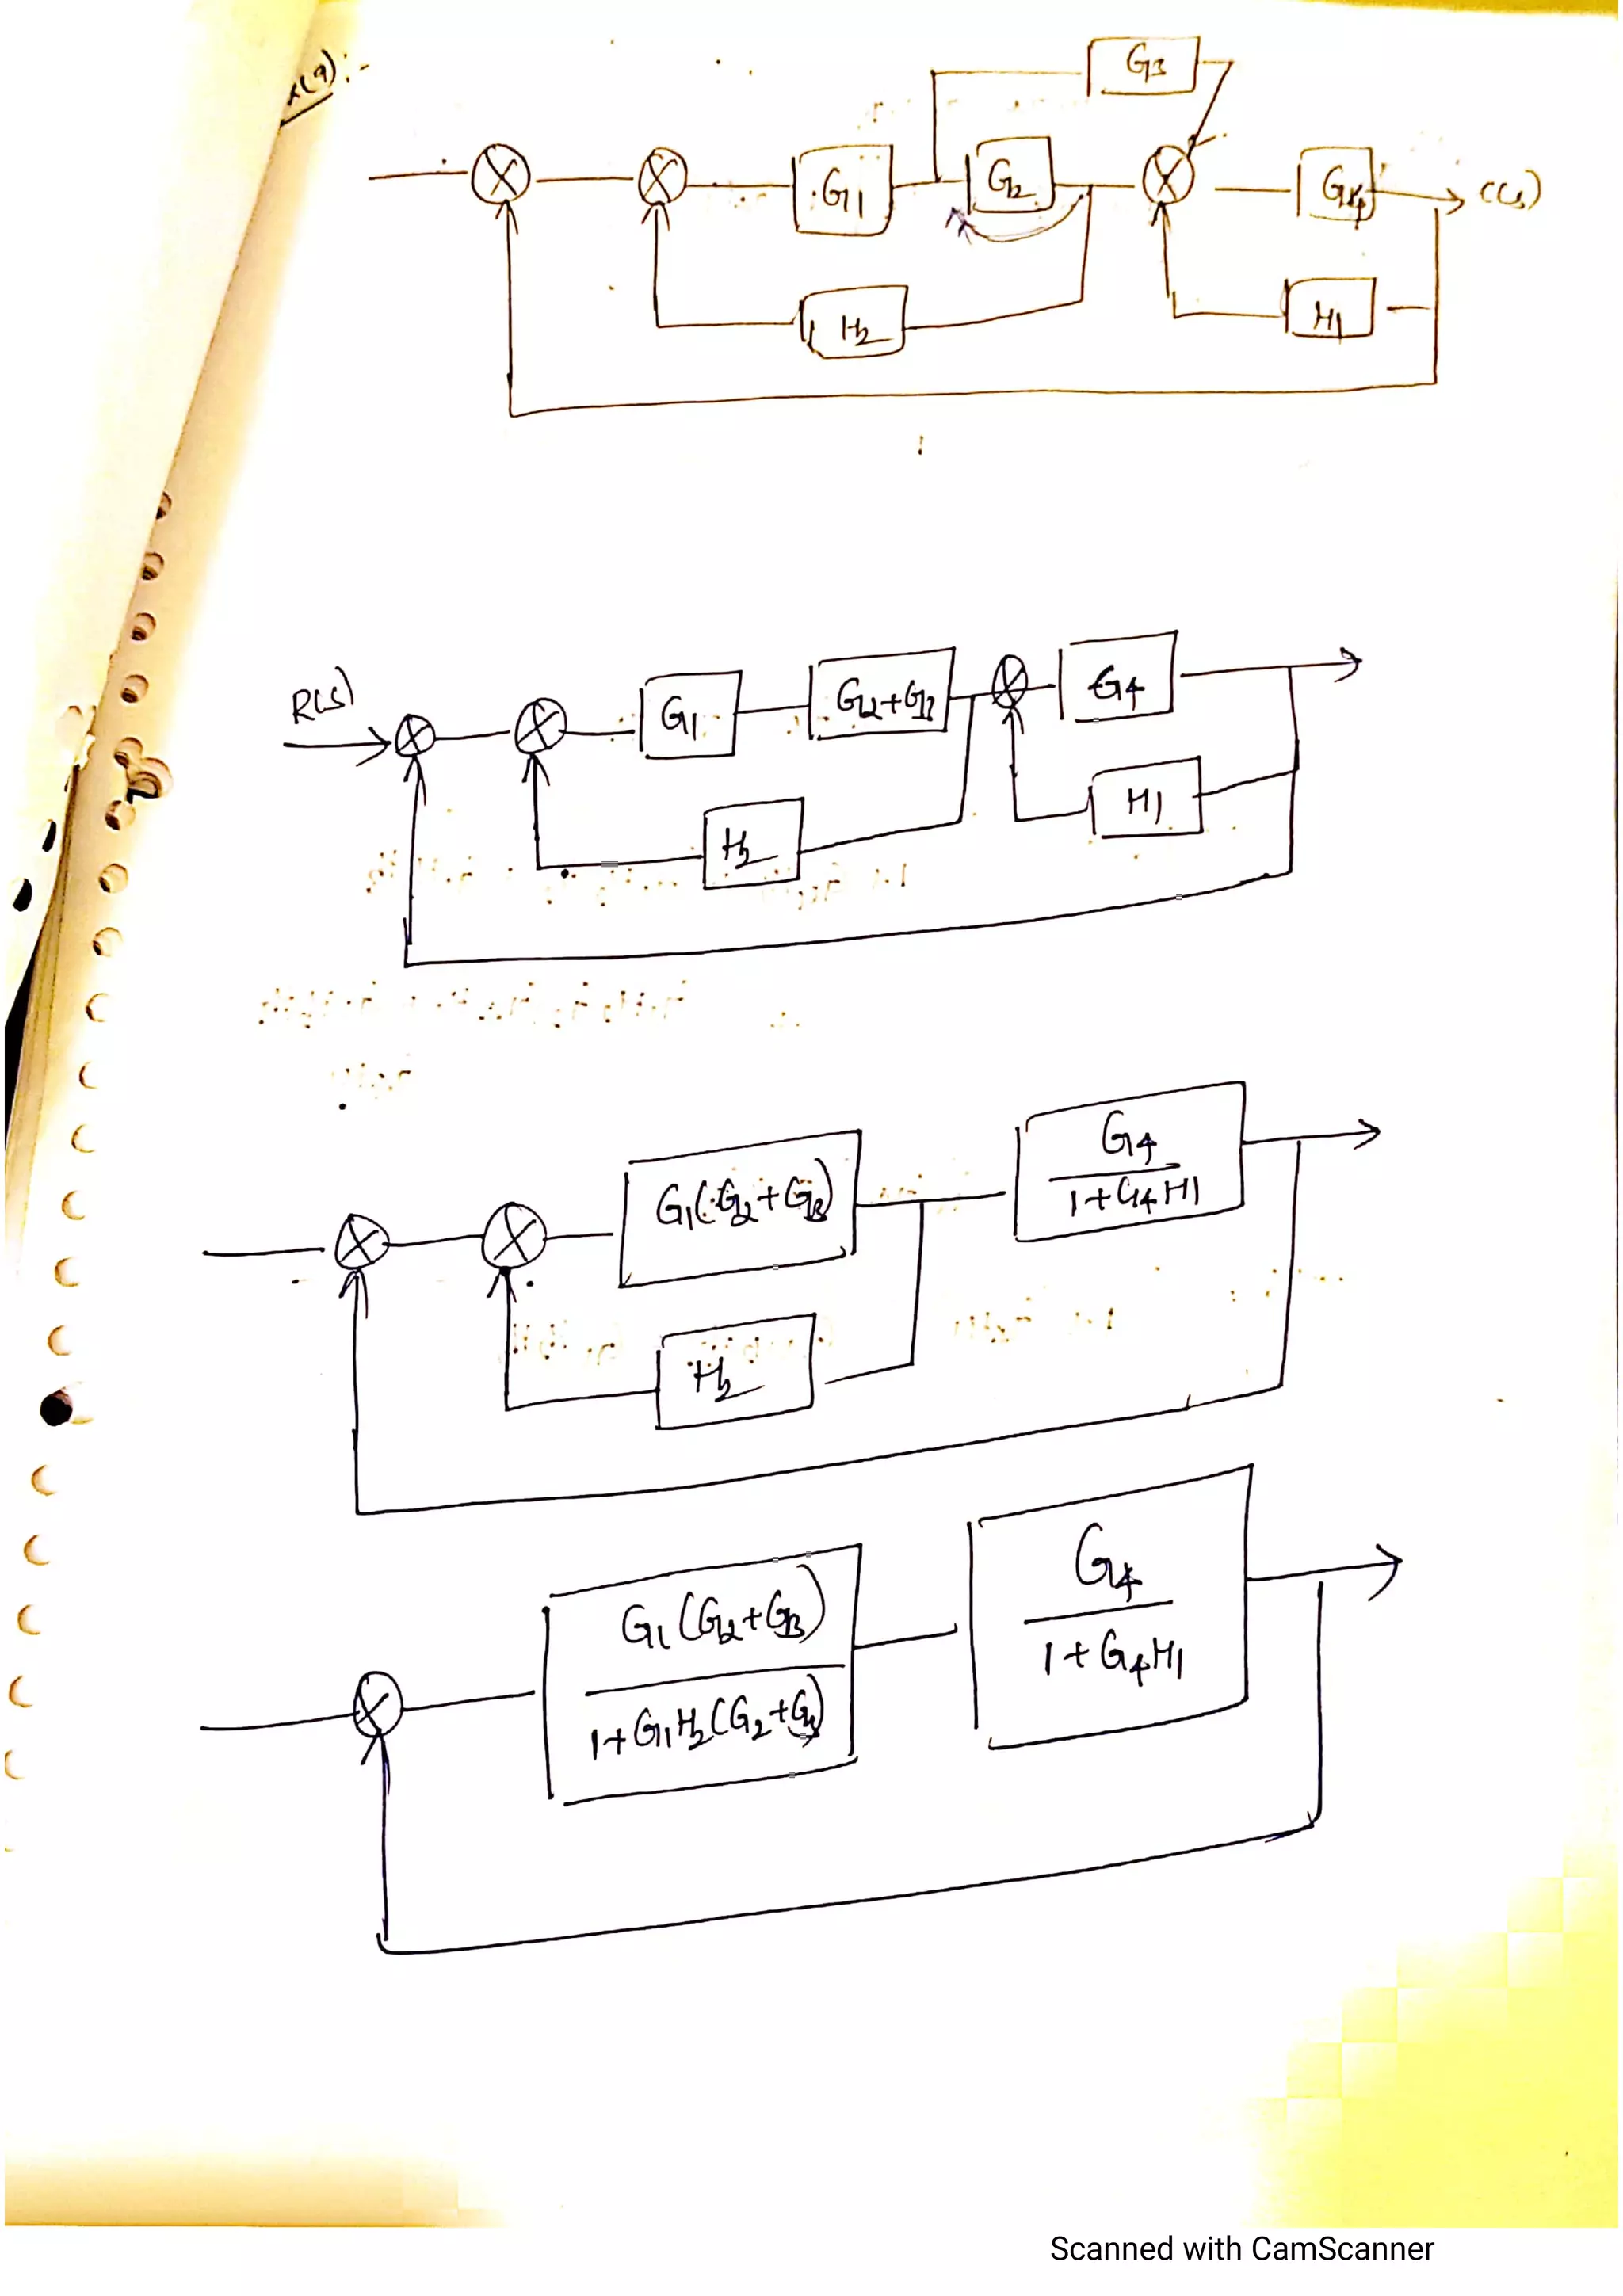 G3
G1 G2 G4 C(s)
H2 H1
R(s) G1 G2+G3 G4
H2 H1
G1(G2+G3) G4
1+G4H1
H2
G1(G2+G3) G4
1+G1H2(G2+G3) 1+G4H1
Scanned with CamScanner